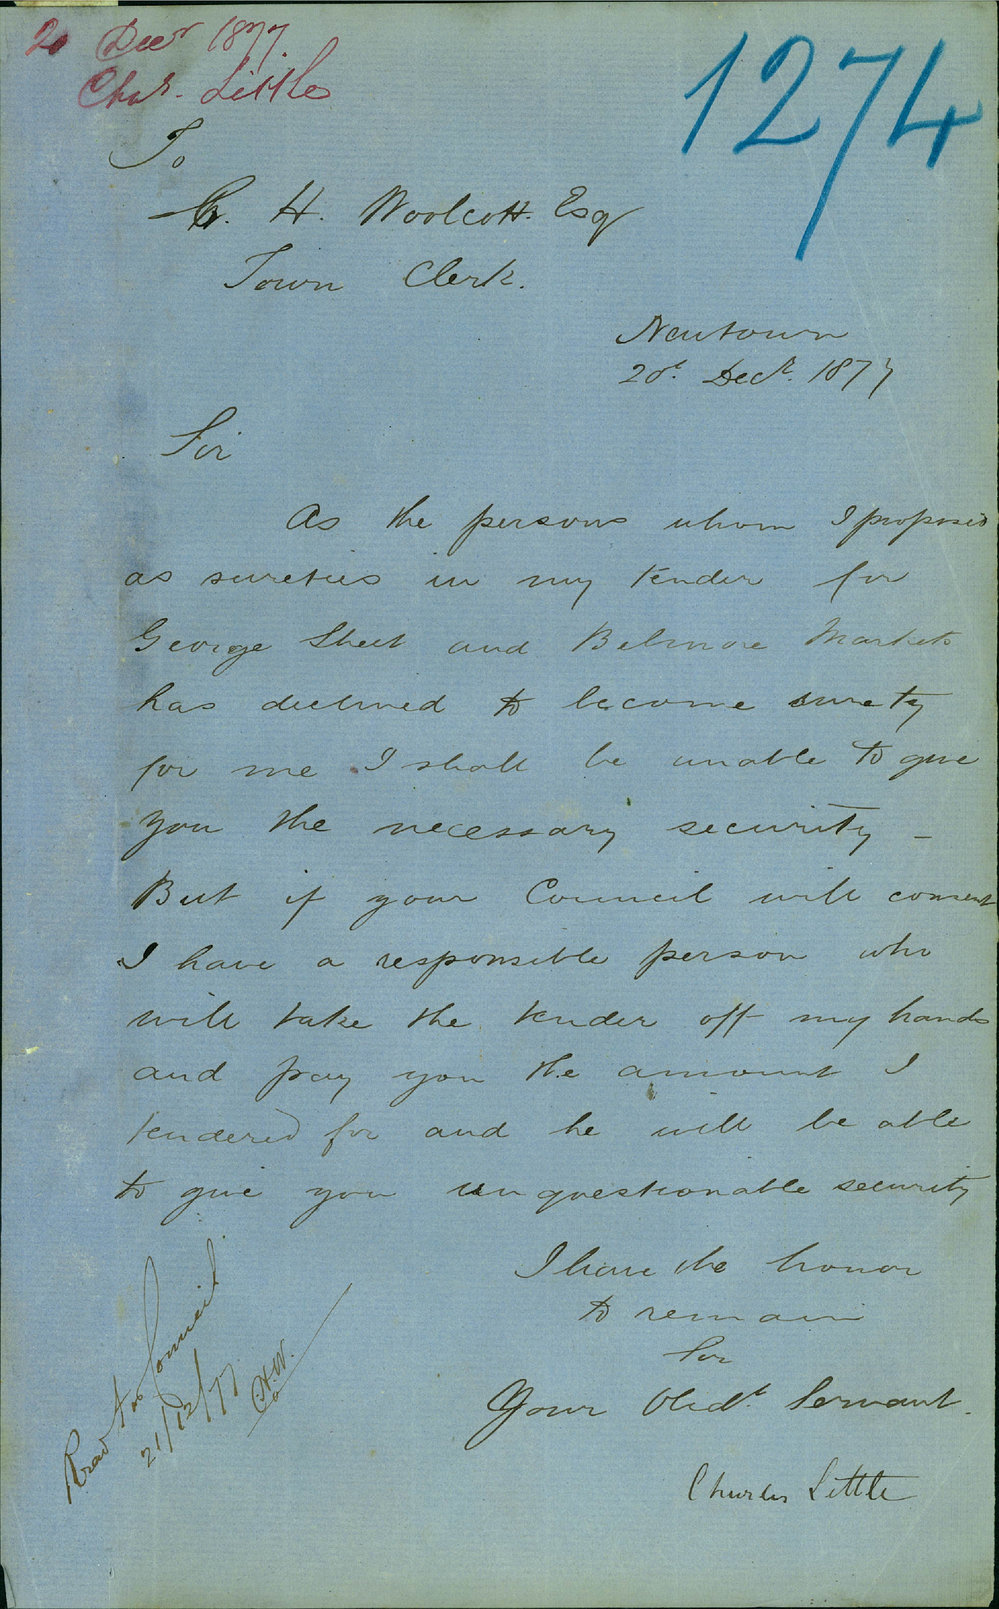 20 Decr 1877
Chas. Little
1274
To
C. H. Woolcott. Esq
Town Clerk.
Newtown
20t. Decr. 1877
Sir
As the persons whom I proposed
as sureties in my tender for
George Street and Belmore Markets
has declined to become surety
for me I shall be unable to give
you the necessary security -
But if your Council will consent
I have a responsible person who
will take the tender off my hands
and pay you the amount I
tendered for and he will be able
to give you unquestionable security
I have the honor
to remain
Sir
Your Obedt. Servant.
Charles Little
Read to Council.
21/12/77.
C.H.W.